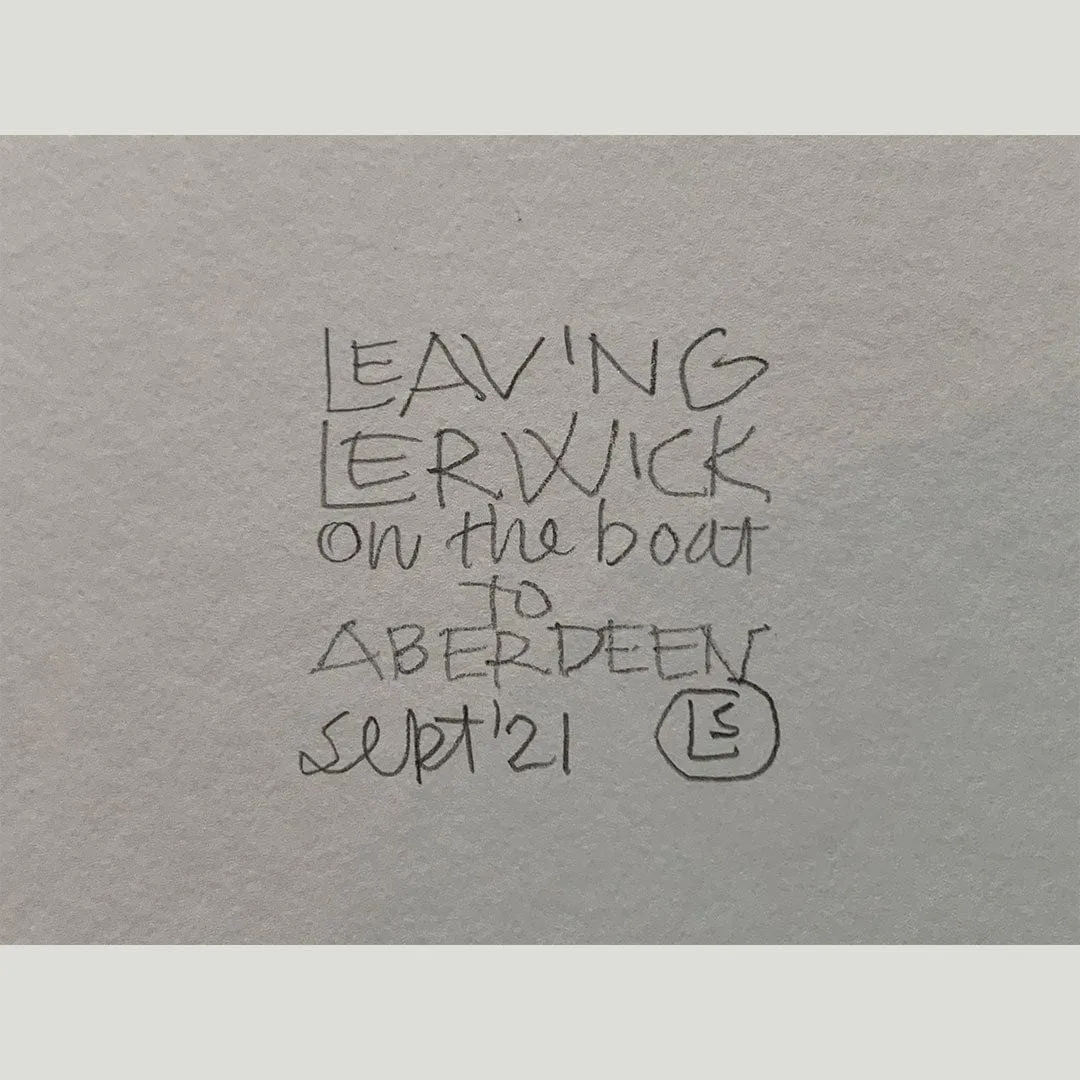 LEAVING
LERWICK
on the boat
TO
ABERDEEN
sept '21 LS